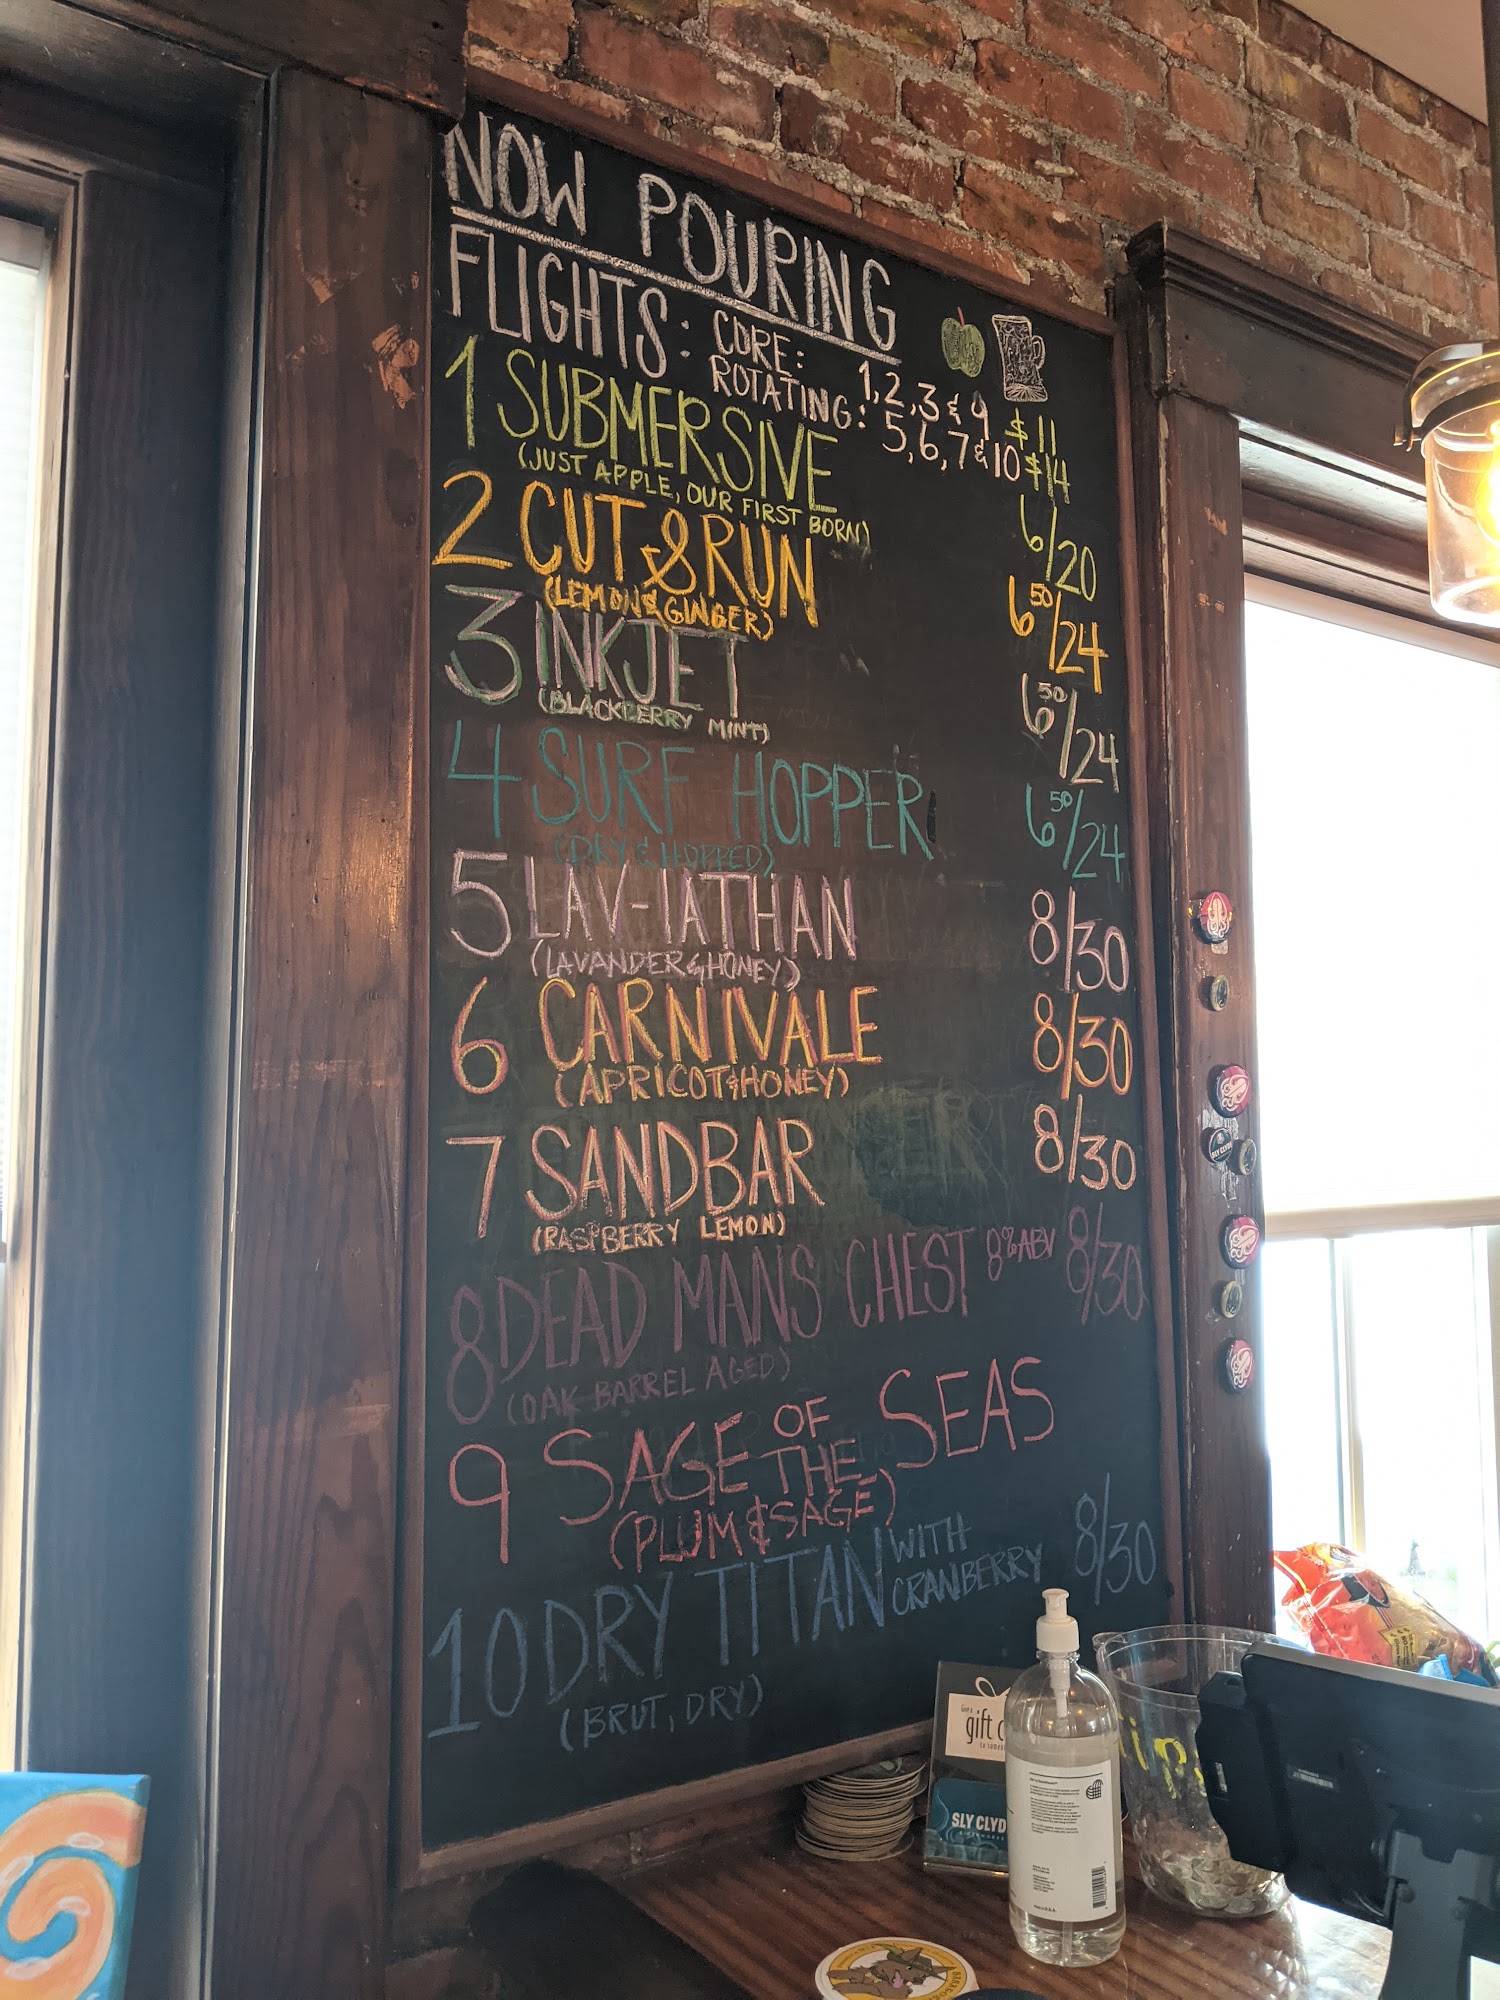 NOW POURING
FLIGHTS: CORE: 1, 2, 3 & 4 $11
ROTATING: 5, 6, 7 & 10 $14
1 SUBMERSIVE 6/20
(JUST APPLE, OUR FIRST BORN)
2 CUT & RUN 6 50/24
(LEMON & GINGER)
3 INKJET 6 50/24
(BLACKBERRY MINT)
4 SURF HOPPER 6 50/24
(DRY & HOPPED)
5 LAV-IATHAN 8/30
(LAVANDER & HONEY)
6 CARNIVALE 8/30
(APRICOT & HONEY)
7 SANDBAR 8/30
(RASPBERRY LEMON)
8 DEAD MANS CHEST 8% ABV 8/30
(OAK BARREL AGED)
9 SAGE OF THE SEAS
(PLUM & SAGE)
10 DRY TITAN WITH CRANBERRY 8/30
(BRUT, DRY)
gift
SLY CLYDE
Tips
SLY CLYDE